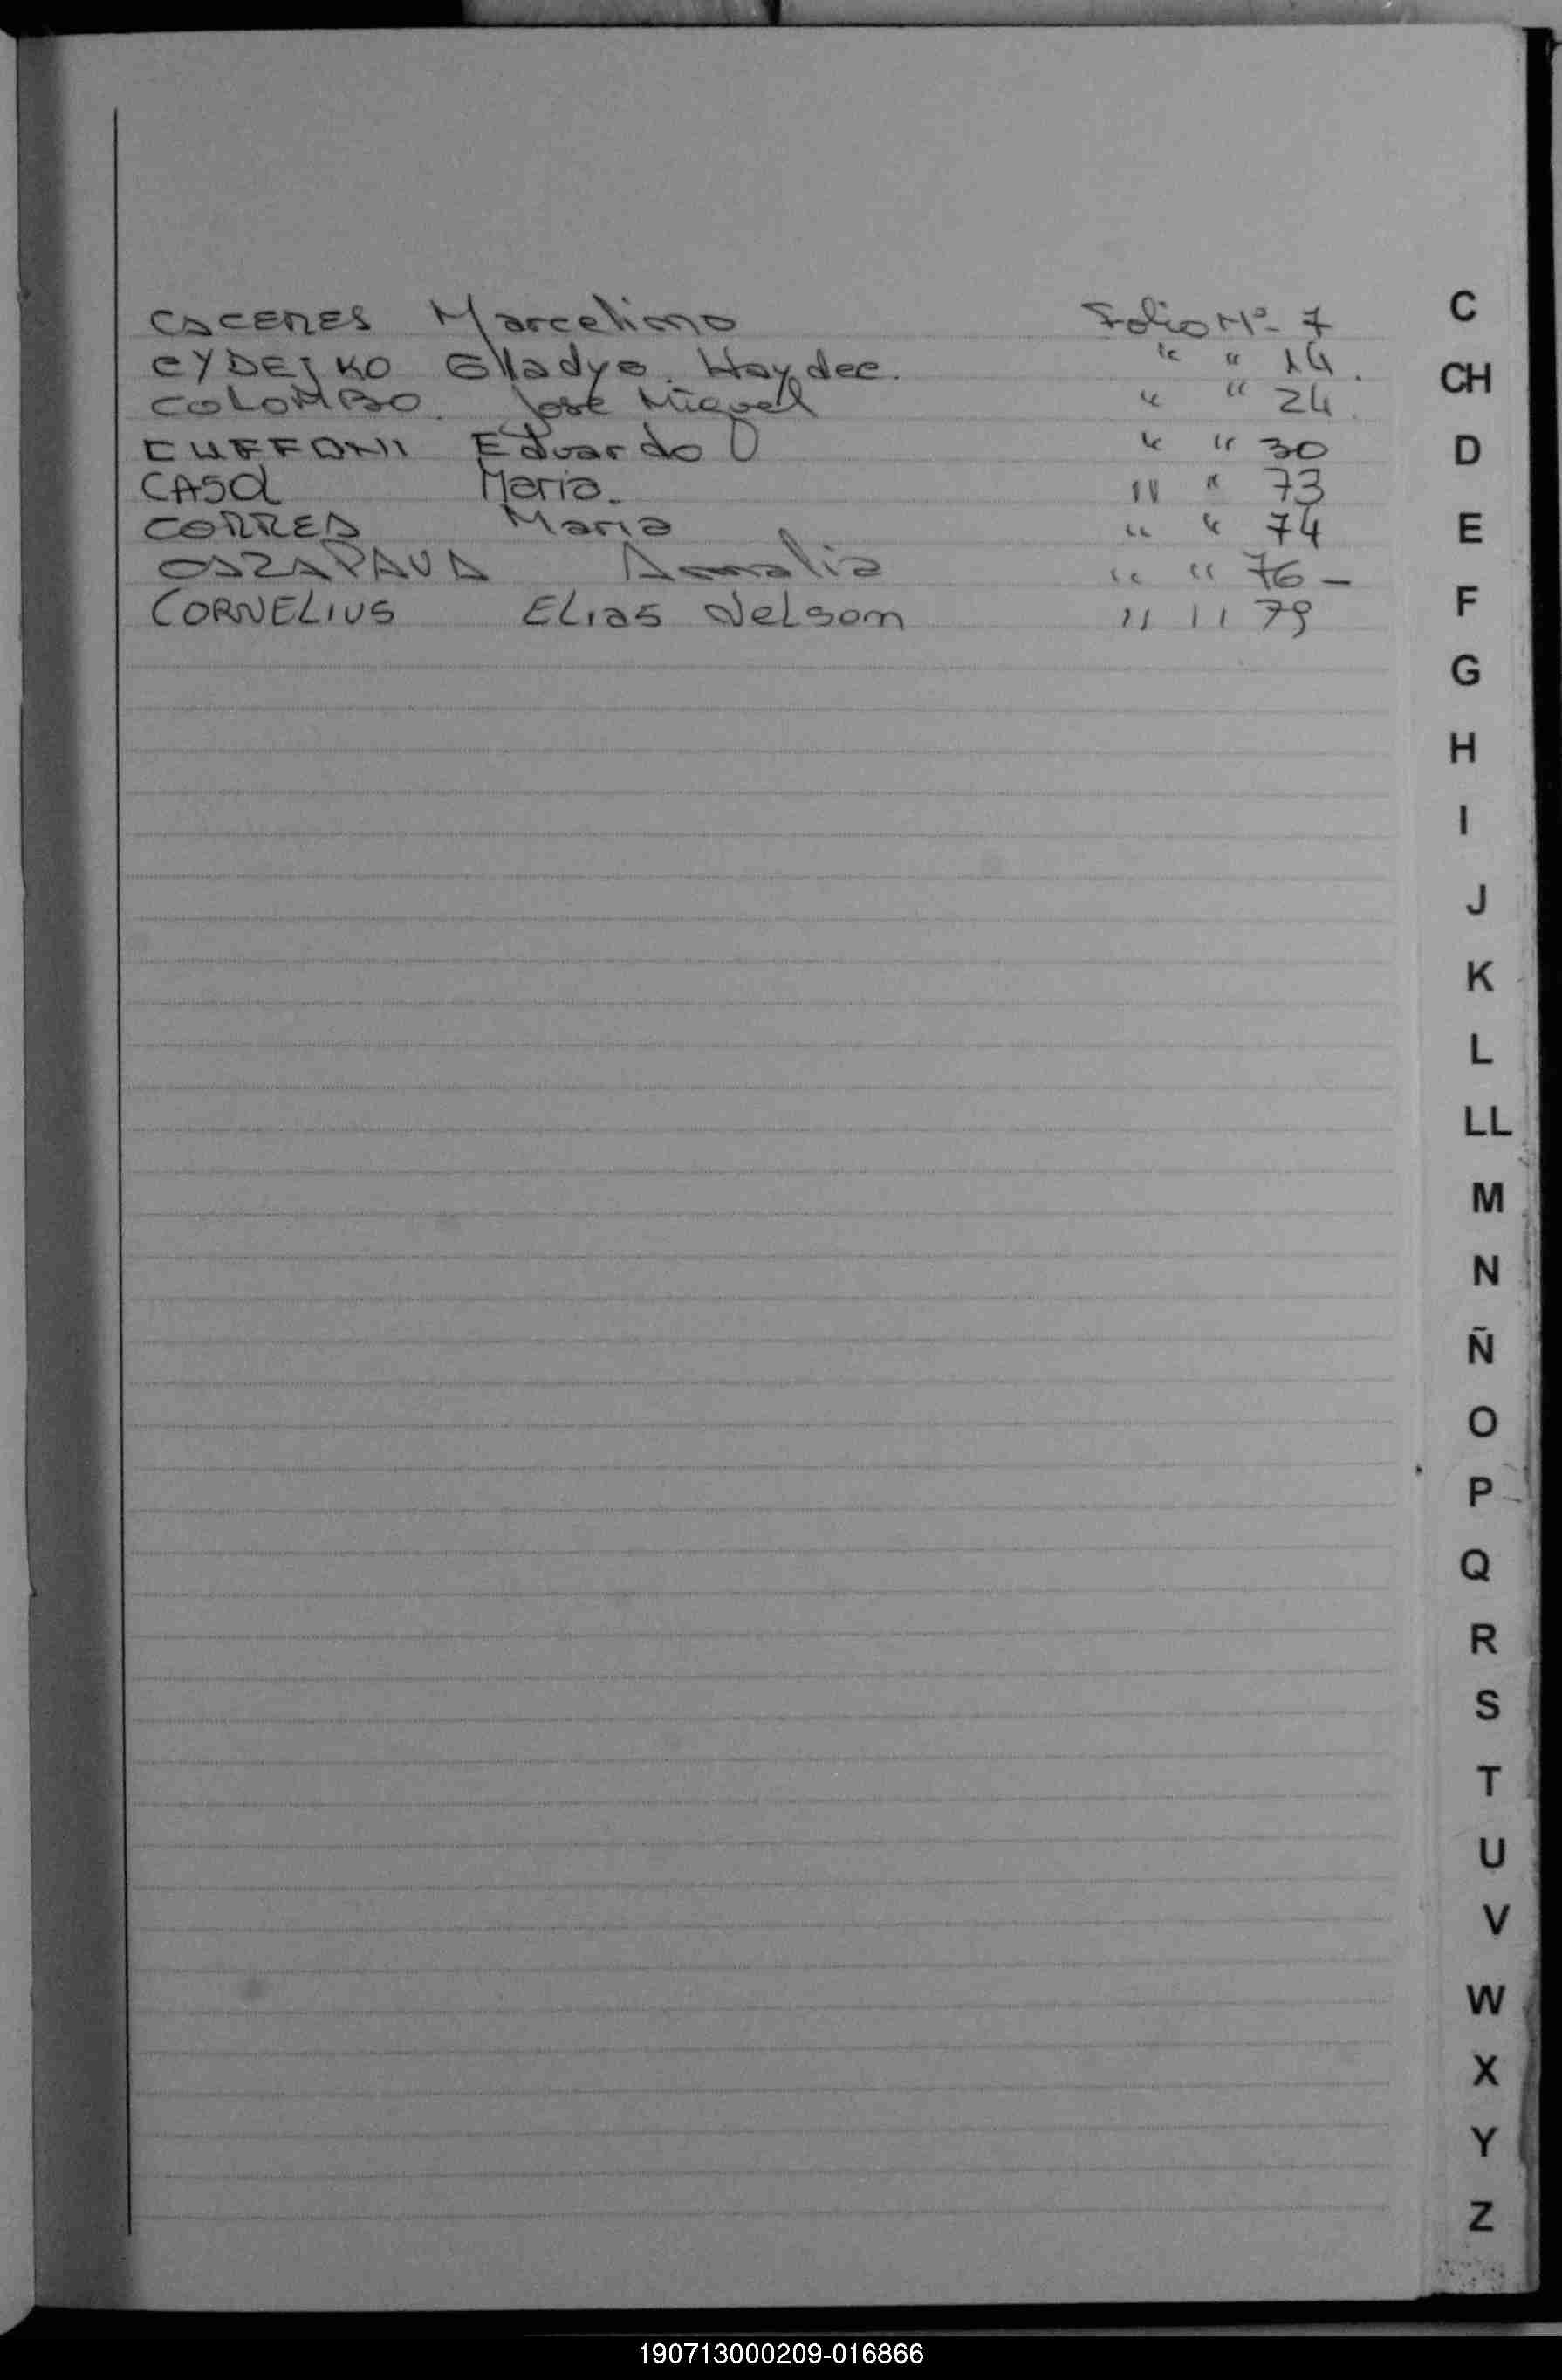 CACERES Marcelino Folio Nº 7
CYDEJKO Glladys Haydee. " " 14.
COLOMBO. José Miguel " " 24.
CUFFONI Eduardo O " " 30
CASOL María. " " 73
CORREA Maria " " 74
Amalia " " 76 -
CORNELIUS ELias Nelson " " 79
C
CH
D
E
F
G
H
I
J
K
L
LL
M
N
Ñ
O
P
Q
R
S
T
U
V
W
X
Y
Z
190713000209-016866